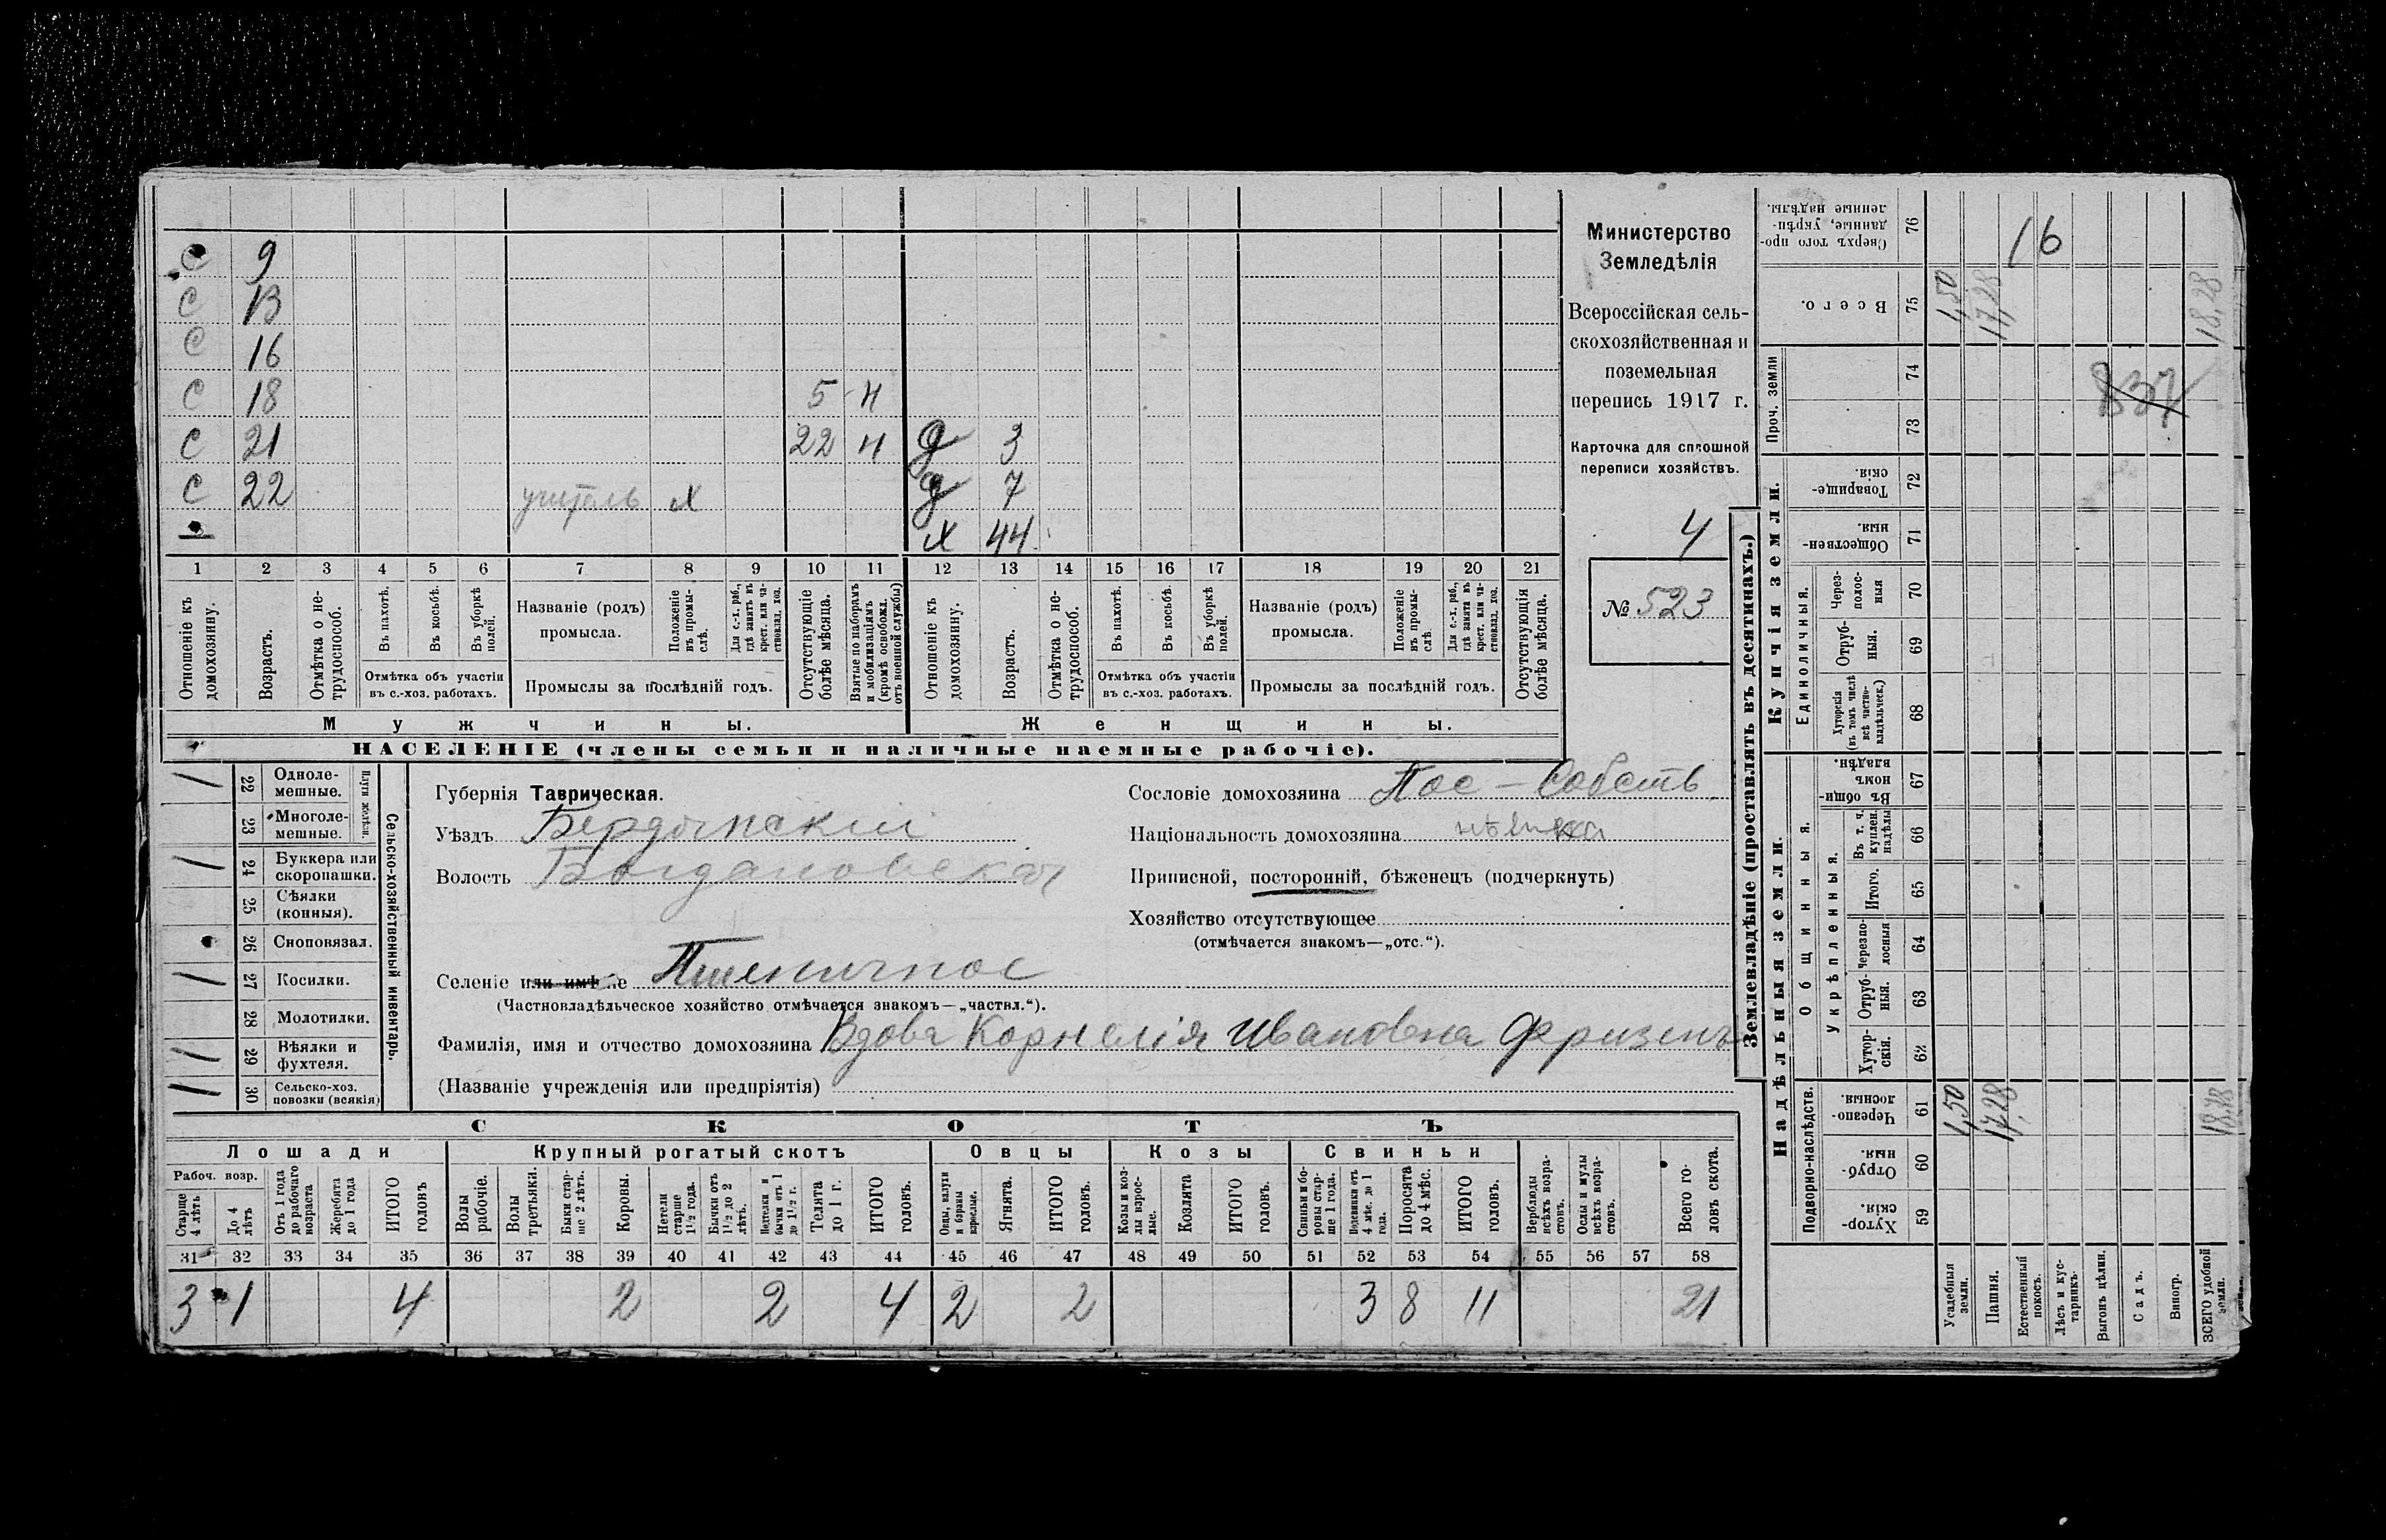 С 9
С 13
С 16
С 18 5 н
С 21 22 н д 3
С 22 учитель х д 7
х 44
1 2 3 4 5 6 7 8 9 10 11 12 13 14 15 16 17 18 19 20 21
Отношеніе къ домохозяину.
Возрастъ.
Отмѣтка о не-трудоспособ.
Въ пахотѣ.
Въ косьбѣ.
Въ уборкѣ полей.
Отмѣтка объ участіи въ с.-хоз. работахъ.
Названіе (родъ) промысла.
Положеніе въ промы-слѣ.
Для с.-х. раб., гдѣ занятъ въ крест. или ча-стновлад. хоз.
Промыслы за послѣдній годъ.
Отсутствующіе болѣе мѣсяца.
Взятые по наборамъ и мобилизаціямъ (кромѣ освобожд. отъ военной службы)
Отношеніе къ домохозяину.
Возрастъ.
Отмѣтка о не-трудоспособ.
Въ пахотѣ.
Въ косьбѣ.
Въ уборкѣ полей.
Отмѣтка объ участіи въ с.-хоз. работахъ.
Названіе (родъ) промысла.
Положеніе въ промы-слѣ
Для с.-х. раб., гдѣ занята въ крест. или ча-стновлад. хоз.
Промыслы за послѣдній годъ.
Отсутствующія болѣе мѣсяца.
Мужчины. Женщины.
НАСЕЛЕНІЕ (члены семьи и наличные наемные рабочіе).
Министерство
Земледѣлія
Всероссійская сель-
скохозяйственная и
поземельная
перепись 1917 г.
Карточка для сплошной
переписи хозяйствъ.
4
№ 523
Сельско-хозяйственный инвентарь.
/ 22 Одноле-мешные.
23 Многоле-мешные.
/ 24 Буккера или скоропашки.
25 Сѣялки (конныя).
26 Сноповязал.
/ 27 Косилки.
28 Молотилки.
/ 29 Вѣялки и фухтеля.
/ 30 Сельско-хоз. повозки (всякія)
Губернія Таврическая.
Уѣздъ Бердянскій
Волость Богдановская
Селеніе или имѣніе Пшеничное
(Частновладѣльческое хозяйство отмѣчается знакомъ—„частвл.“).
Фамилія, имя и отчество домохозяина Вдова Корнелія Ивановна Фризенъ
(Названіе учрежденія или предпріятія)
Сословіе домохозяина Пос – Собств.
Національность домохозяина нѣмка
Приписной, посторонній, бѣженецъ (подчеркнуть)
Хозяйство отсутствующее
(отмѣчается знакомъ—„отс.“).
СКОТЪ
Лошади Крупный рогатый скотъ Овцы Козы Свиньи
Рабоч. возр.
Старше 4 лѣтъ
До 4 лѣтъ
Отъ 1 года до рабочаго возраста
Жеребята до 1 года
ИТОГО головъ
Волы рабочіе.
Волы третьяки.
Быки стар-ше 2 лѣтъ.
Коровы.
Нетели старше 1½ года.
Бычки отъ 1½ до 2 лѣтъ.
бычки отъ 1 до 1½ г.
Телята до 1 г.
ИТОГО головъ.
Овцы, валухи и бараны взрослые.
Ягнята.
ИТОГО головъ.
Козы и коз-лы взрос-лые.
Козлята
ИТОГО головъ.
Свиньи и бо-ровы стар-ше 1 года.
Подсвинки отъ 4 мѣс. до 1 года.
Поросята до 4 мѣс.
ИТОГО головъ.
Верблюды всѣхъ возра-стовъ.
Ослы и мулы всѣхъ возра-стовъ.
Всего го-ловъ скота.
31 32 33 34 35 36 37 38 39 40 41 42 43 44 45 46 47 48 49 50 51 52 53 54 55 56 57 58
3 1 4 2 2 4 2 2 3 8 11 21
Землевладѣніе (проставлять въ десятинахъ.)
Надѣльныя земли.
Купчія земли.
Проч. земли
Подворно-наслѣдств.
Общинныя.
Укрѣпленныя.
Единоличныя.
Сверхъ того про-данные, укрѣп-ленные надѣлы. 76 16
Всего. 75 1,50 17,28 18,28
74
73
Товарище-скія. 72
Обществен-ныя. 71
Через-полос-ныя 70
Отруб-ныя. 69
Хуторскія (въ томъ числѣ всѣ частно-владѣльческ.) 68
Въ общин-номъ владѣн. 67
Въ т. ч. куплен. надѣлы 66
Итого. 65
Черезпо-лосныя 64
Отруб-ныя. 63
Хутор-скія. 62
Черезпо-лосныя. 61 1,50 17,28
Отруб-ныя. 60
Хутор-скія. 59
Усадебныя земли.
Пашня.
Естественный покосъ.
Лѣсъ и кус-тарникъ.
Выгонъ цѣлин.
Садъ.
Виногр.
ВСЕГО удобной земли.